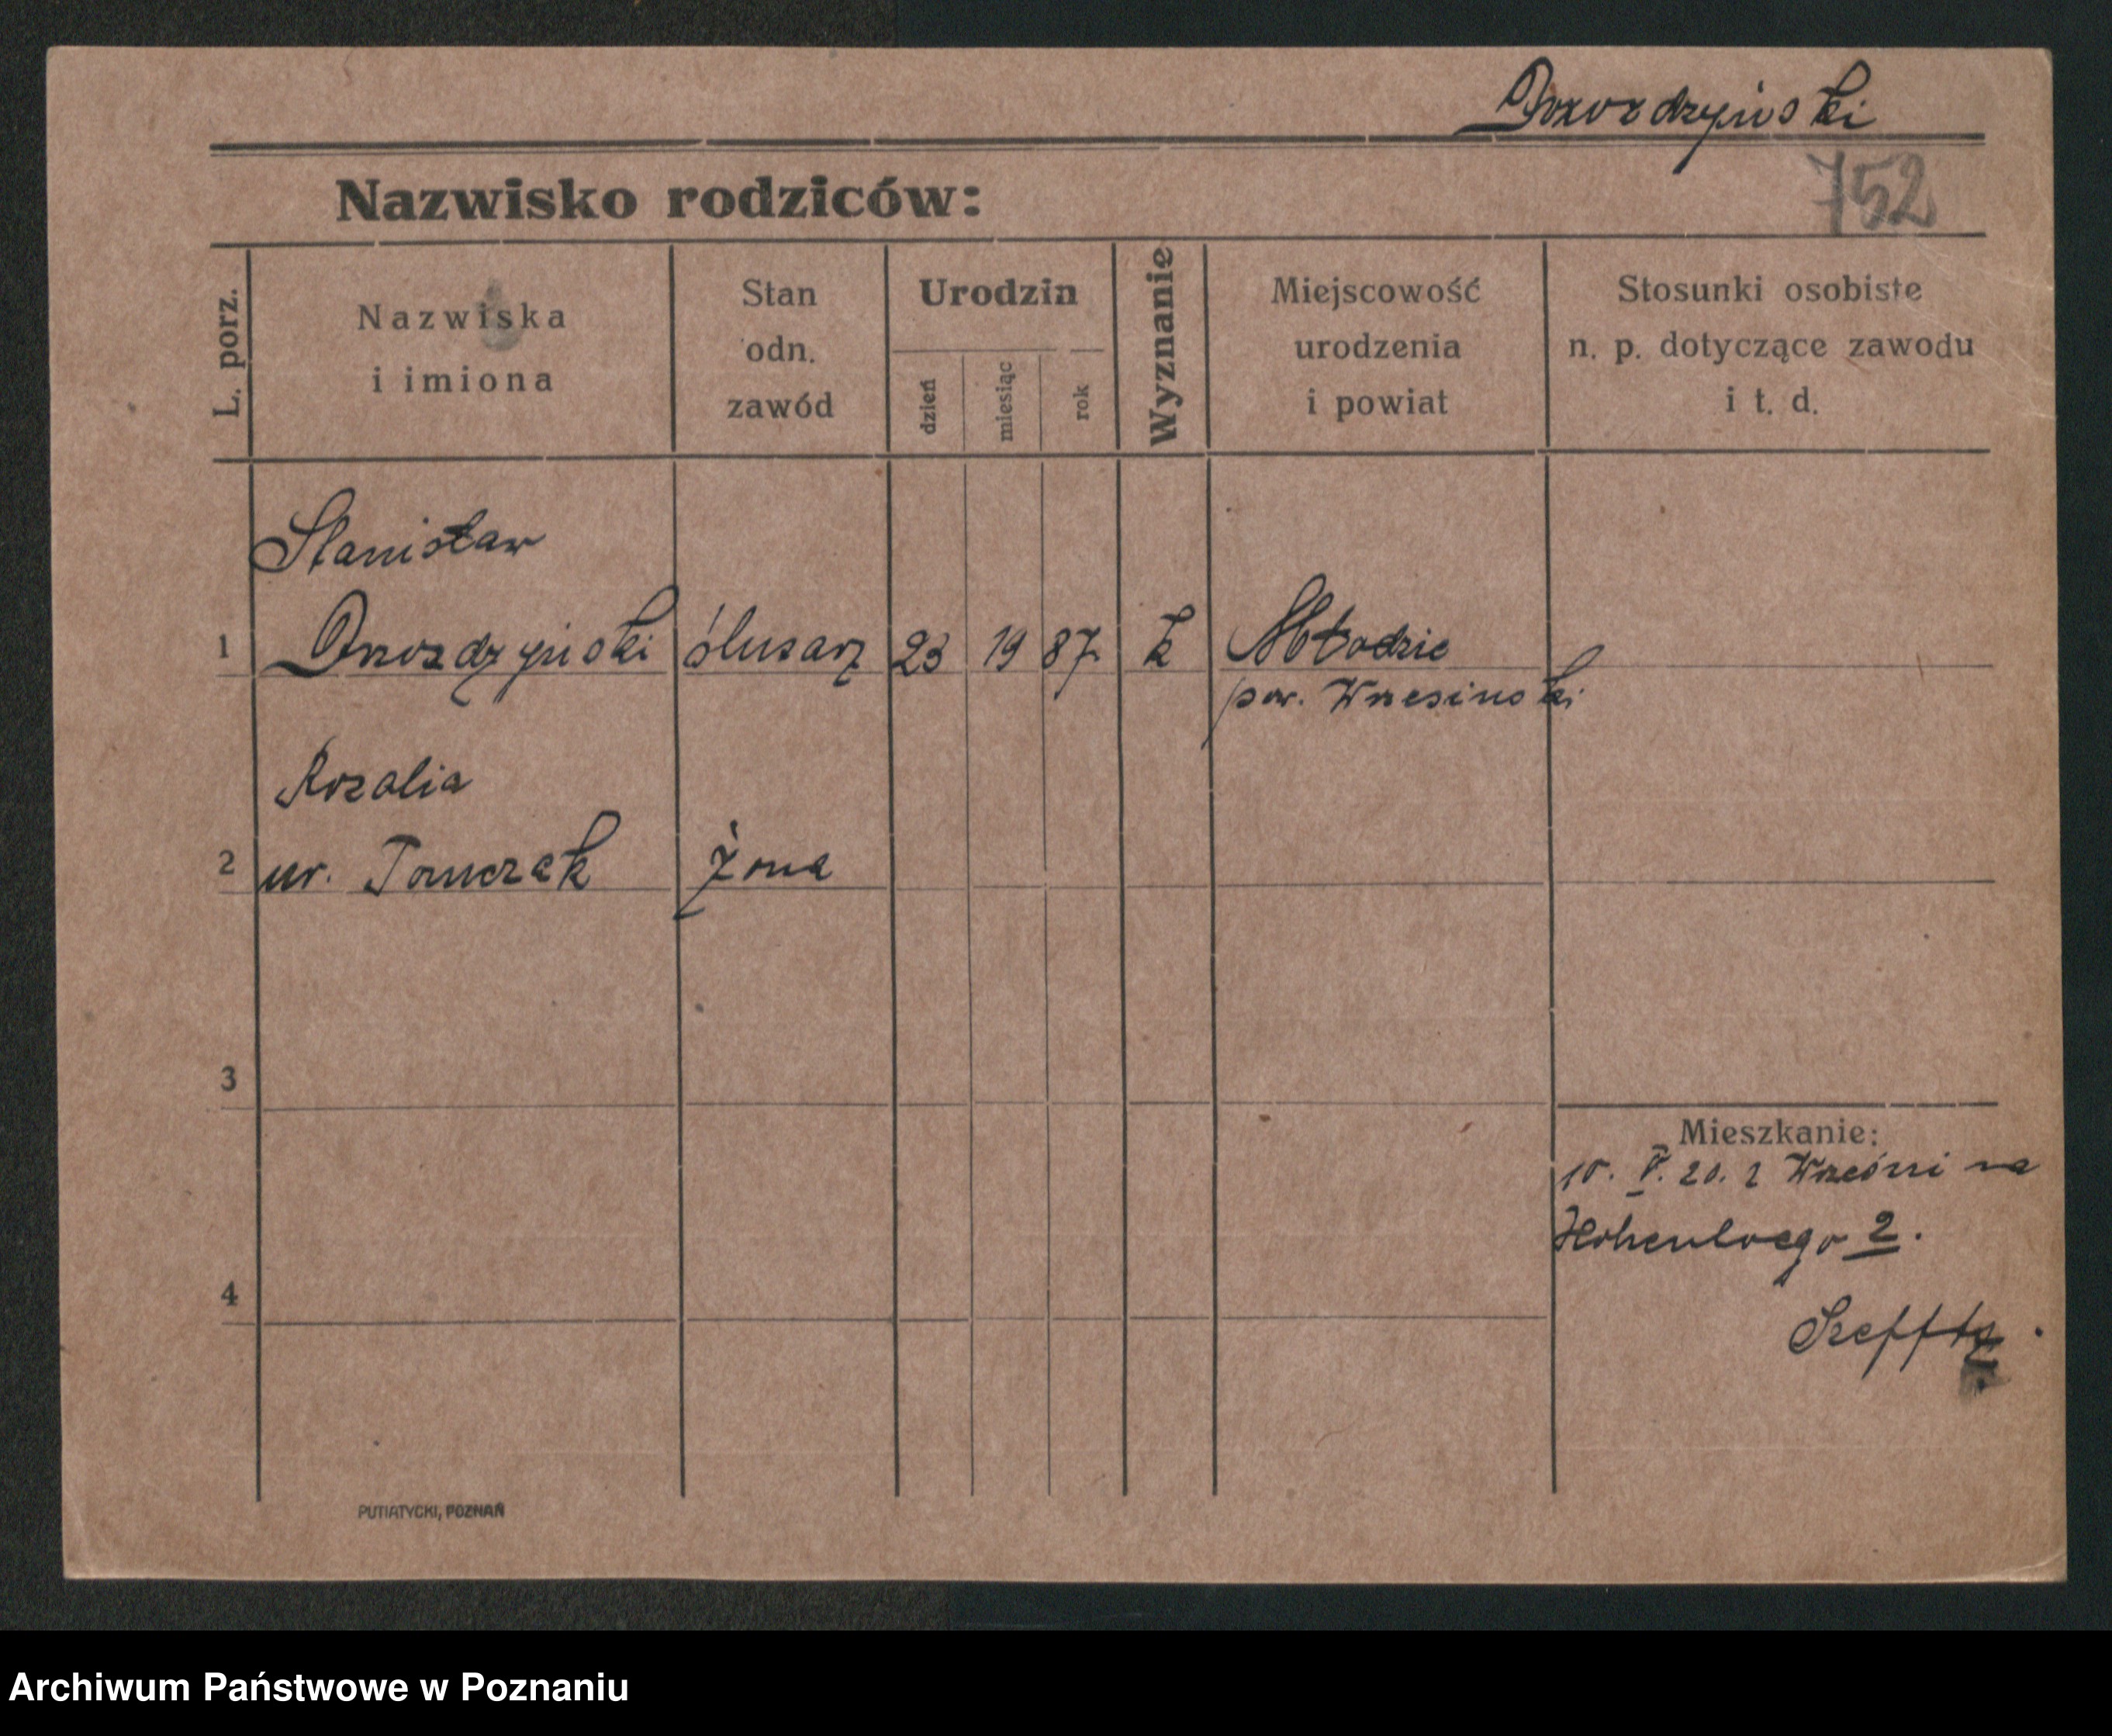 Drozdzyński
752
Nazwisko rodziców:
L. porz.
Nazwiska
i imiona
Stan
odn.
zawód
Urodzin
dzień
miesiąc
rok
Wyznanie
Miejscowość
urodzenia
i powiat
Stosunki osobiste
n. p. dotyczące zawodu
i t. d.
Stanisław
1 Drozdzyński ślusarz 23 19 87. k
pow. Wrzesinski
Rozalia
2 ur. Tomczak żona
3
Mieszkanie:
10. V. 20. z Wrześni na
Hohenloego 2.
4
PUTIATYCKI, POZNAŃ
Archiwum Państwowe w Poznaniu